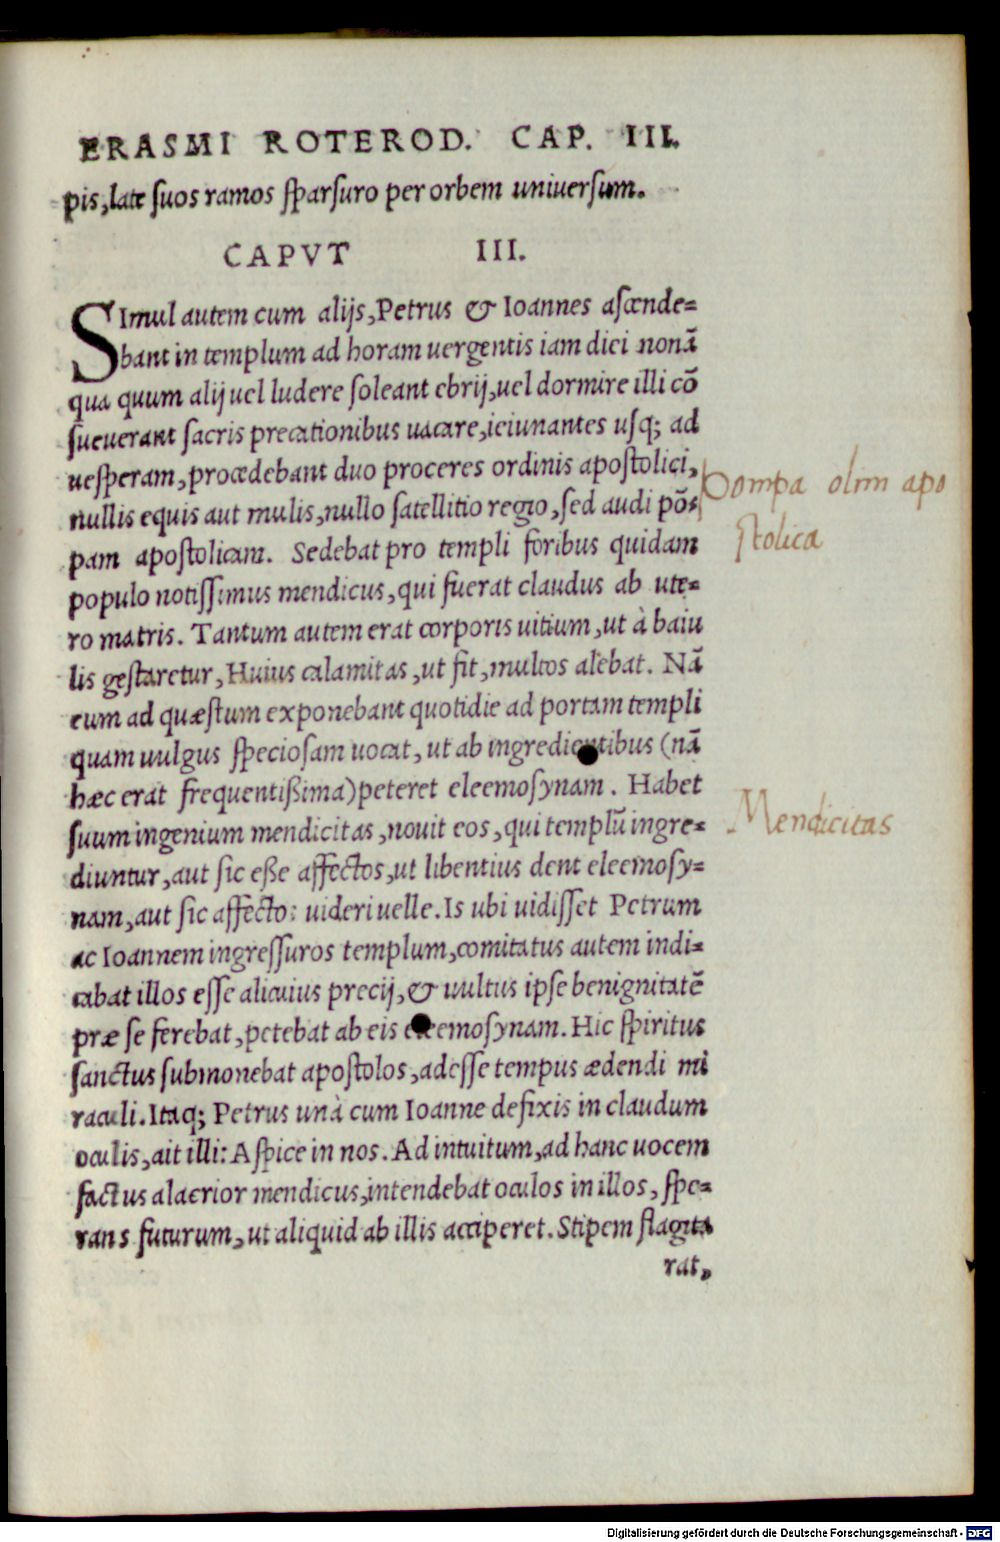 ERASMI ROTEROD. CAP. III.
pis, late suos ramos sparsuro per orbem uniuersum.
CAPVT III.
SImul autem cum alijs, Petrus & Ioannes ascende-
bant in templum ad horam uergentis iam diei nonā
qua quum alij uel ludere soleant ebrij, uel dormire illi cō
sueuerant sacris precationibus uacare, ieiunantes usq; ad
uesperam, procedebant duo proceres ordinis apostolici,
nullis equis aut mulis, nullo satellitio regio, sed audi pō-
pam apostolicam. Sedebat pro templi foribus quidam
populo notissimus mendicus, qui fuerat claudus ab ute-
ro matris. Tantum autem erat corporis uitium, ut à baiu
lis gestaretur, Huius calamitas, ut fit, multos alebat. Nā
eum ad quæstum exponebant quotidie ad portam templi
quam uulgus speciosam uocat, ut ab ingredientibus (nā
hæc erat frequentißima) peteret eleemosynam. Habet
suum ingenium mendicitas, nouit eos, qui templū ingre-
diuntur, aut sic eße affectos, ut libentius dent eleemosy-
nam, aut sic affectos uideri uelle. Is ubi uidisset Petrum
ac Ioannem ingressuros templum, comitatus autem indi-
cabat illos esse alicuius precij, & uultus ipse benignitatē
præ se ferebat, petebat ab eis eleemosynam. Hic spiritus
sanctus submonebat apostolos, adesse tempus ædendi mi
raculi. Itaq; Petrus unà cum Ioanne defixis in claudum
oculis, ait illi: Aspice in nos. Ad intuitum, ad hanc uocem
factus alacrior mendicus, intendebat oculos in illos, spe-
rans futurum, ut aliquid ab illis acciperet. Stipem flagita
rat,
pompa olim apo
stolica
Mendicitas
Digitalisierung gefördert durch die Deutsche Forschungsgemeinschaft - DFG